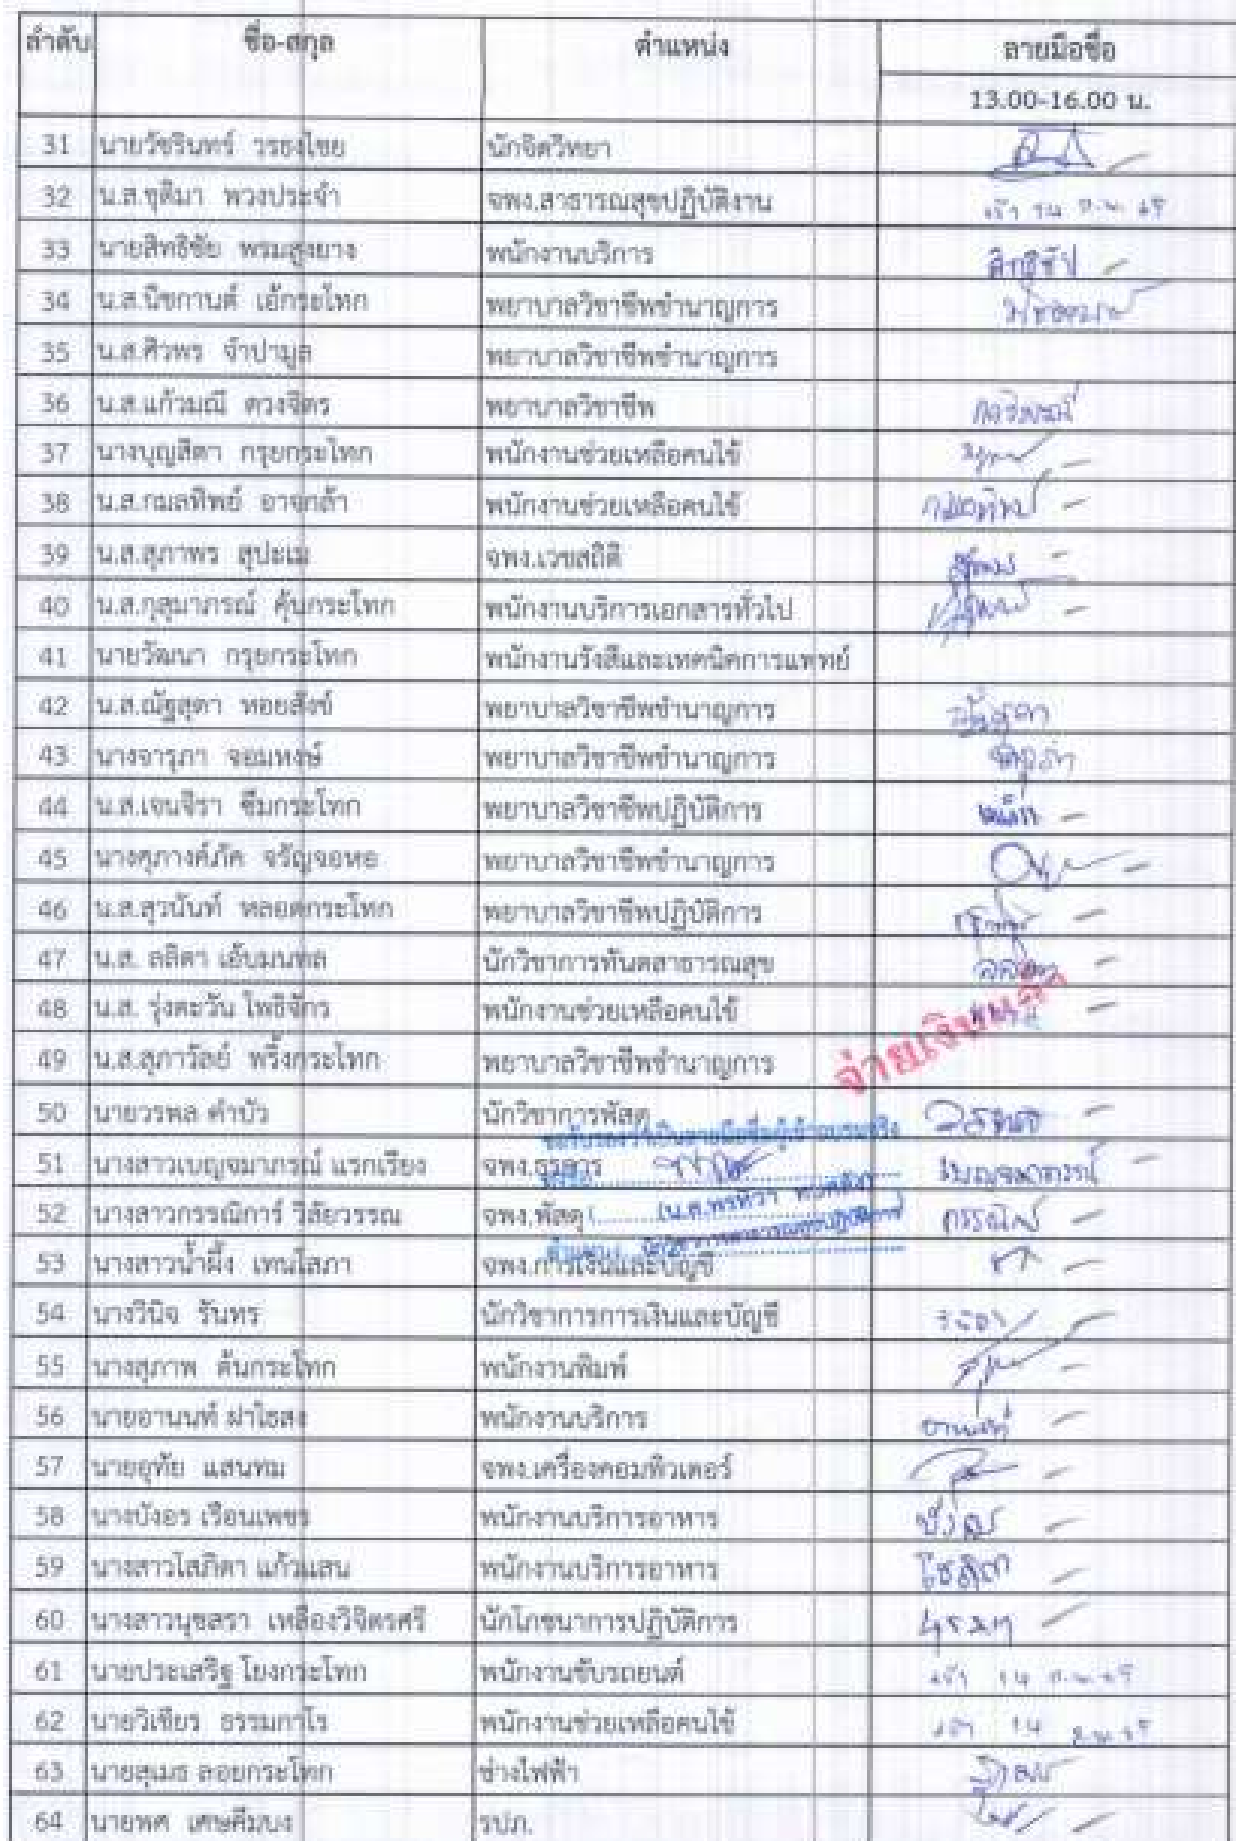 ลำดับ ชื่อ-สกุล ตำแหน่ง ลายมือชื่อ
13.00-16.00 น.
31 นายวัชรินทร์ วรธงไชย นักจิตวิทยา
32 น.ส.ชุติมา พวงประจำ จพง.สาธารณสุขปฏิบัติงาน
33 นายสิทธิชัย พรมสูงยาง พนักงานบริการ สิทธิชัย
34 น.ส.นิชกานต์ เอ้กระโทก พยาบาลวิชาชีพชำนาญการ
35 น.ส.ศิวพร จำปามูล พยาบาลวิชาชีพชำนาญการ
36 น.ส.แก้วมณี ดวงจิตร พยาบาลวิชาชีพ
37 นางบุญสิตา กรุยกระโทก พนักงานช่วยเหลือคนไข้
38 น.ส.กมลทิพย์ อาจกล้า พนักงานช่วยเหลือคนไข้ กมลทิพย์
39 น.ส.สุภาพร สุปะเม จพง.เวชสถิติ
40 น.ส.กุสุมาภรณ์ คุ้นกระโทก พนักงานบริการเอกสารทั่วไป
41 นายวัฒนา กรุยกระโทก พนักงานรังสีและเทคนิคการแพทย์
42 น.ส.ณัฐสุดา หอยสังข์ พยาบาลวิชาชีพชำนาญการ ณัฐสุดา
43 นางจารุภา จอมหงษ์ พยาบาลวิชาชีพชำนาญการ จารุภา
44 น.ส.เจนจิรา ซึมกระโทก พยาบาลวิชาชีพปฏิบัติการ
45 นางศุภางค์ภัค จรัญจอหอ พยาบาลวิชาชีพชำนาญการ
46 น.ส.สุวนันท์ หลอดกระโทก พยาบาลวิชาชีพปฏิบัติการ
47 น.ส. ลลิตา เอ็บมณฑล นักวิชาการทันตสาธารณสุข ลลิตา
48 น.ส. รุ่งตะวัน โพธิจักร พนักงานช่วยเหลือคนไข้
จ่ายเงินแล้ว
49 น.ส.สุภาวัลย์ พริ้งกระโทก พยาบาลวิชาชีพชำนาญการ
50 นายวรพล คำบัว นักวิชาการพัสดุ วรพล
ขอรับรองว่าเป็นลายมือชื่อผู้เข้าอบรมจริง
51 นางสาวเบญจมาภรณ์ แรกเรียง จพง.ธุรการ เบญจมาภรณ์
52 นางสาวกรรณิการ์ วิลัยวรรณ จพง.พัสดุ กรรณิการ์
53 นางสาวน้ำผึ้ง เทนโสภา จพง.การเงินและบัญชี
54 นางวินิจ รันทร นักวิชาการการเงินและบัญชี
55 นางสุภาพ ต้นกระโทก พนักงานพิมพ์
56 นายอานนท์ ฝาไธสง พนักงานบริการ อานนท์
57 นายอุทัย แสนทม จพง.เครื่องคอมพิวเตอร์
58 นางบังอร เรือนเพชร พนักงานบริการอาหาร บังอร
59 นางสาวโสภิดา แก้วแสน พนักงานบริการอาหาร โสภิดา
60 นางสาวนุชสรา เหลืองวิจิตรศรี นักโภชนาการปฏิบัติการ นุชสรา
61 นายประเสริฐ โยงกระโทก พนักงานขับรถยนต์
62 นายวิเชียร ธรรมกาโร พนักงานช่วยเหลือคนไข้
63 นายสุเมธ ลอยกระโทก ช่างไฟฟ้า
64 นายพศ เศษคึมบง รปภ.